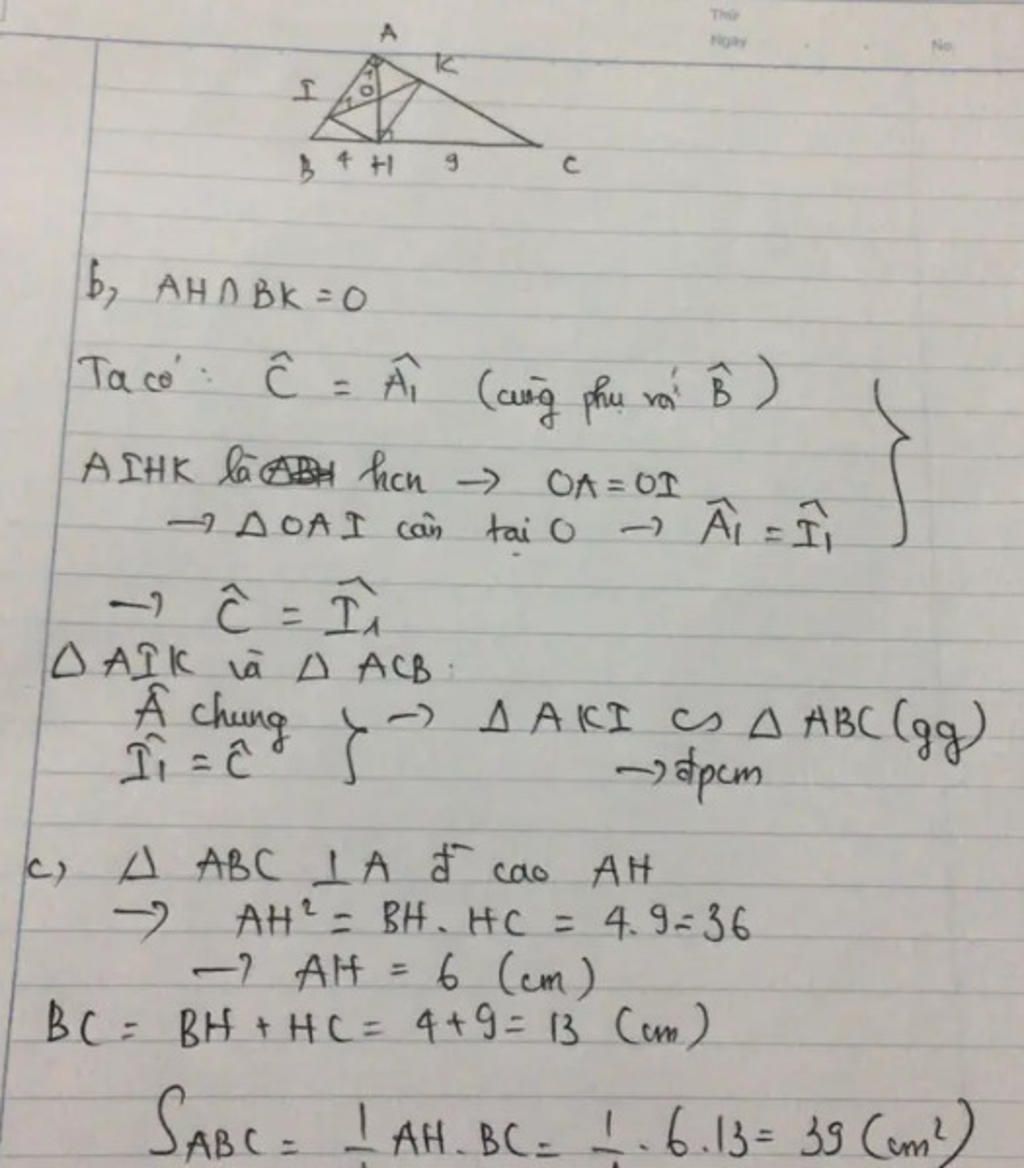 Thứ
Ngày . . No.
A
K
I
1
O
1
B 4 H 9 C
b, AH ∩ BK = O
Ta có: Ĉ = Â₁ (cùng phụ với B̂)
AIHK là hcn → OA = OI
→ Δ OAI cân tại O → Â₁ = Î₁
→ Ĉ = Î₁
Δ AIK và Δ ACB:
Â chung } → Δ AKI ∽ Δ ABC (gg)
Î₁ = Ĉ → đpcm
c, Δ ABC ⊥ A đ cao AH
→ AH² = BH . HC = 4.9 = 36
→ AH = 6 (cm)
BC = BH + HC = 4 + 9 = 13 (cm)
S ABC = 1 AH . BC = 1 . 6 . 13 = 39 (cm²)